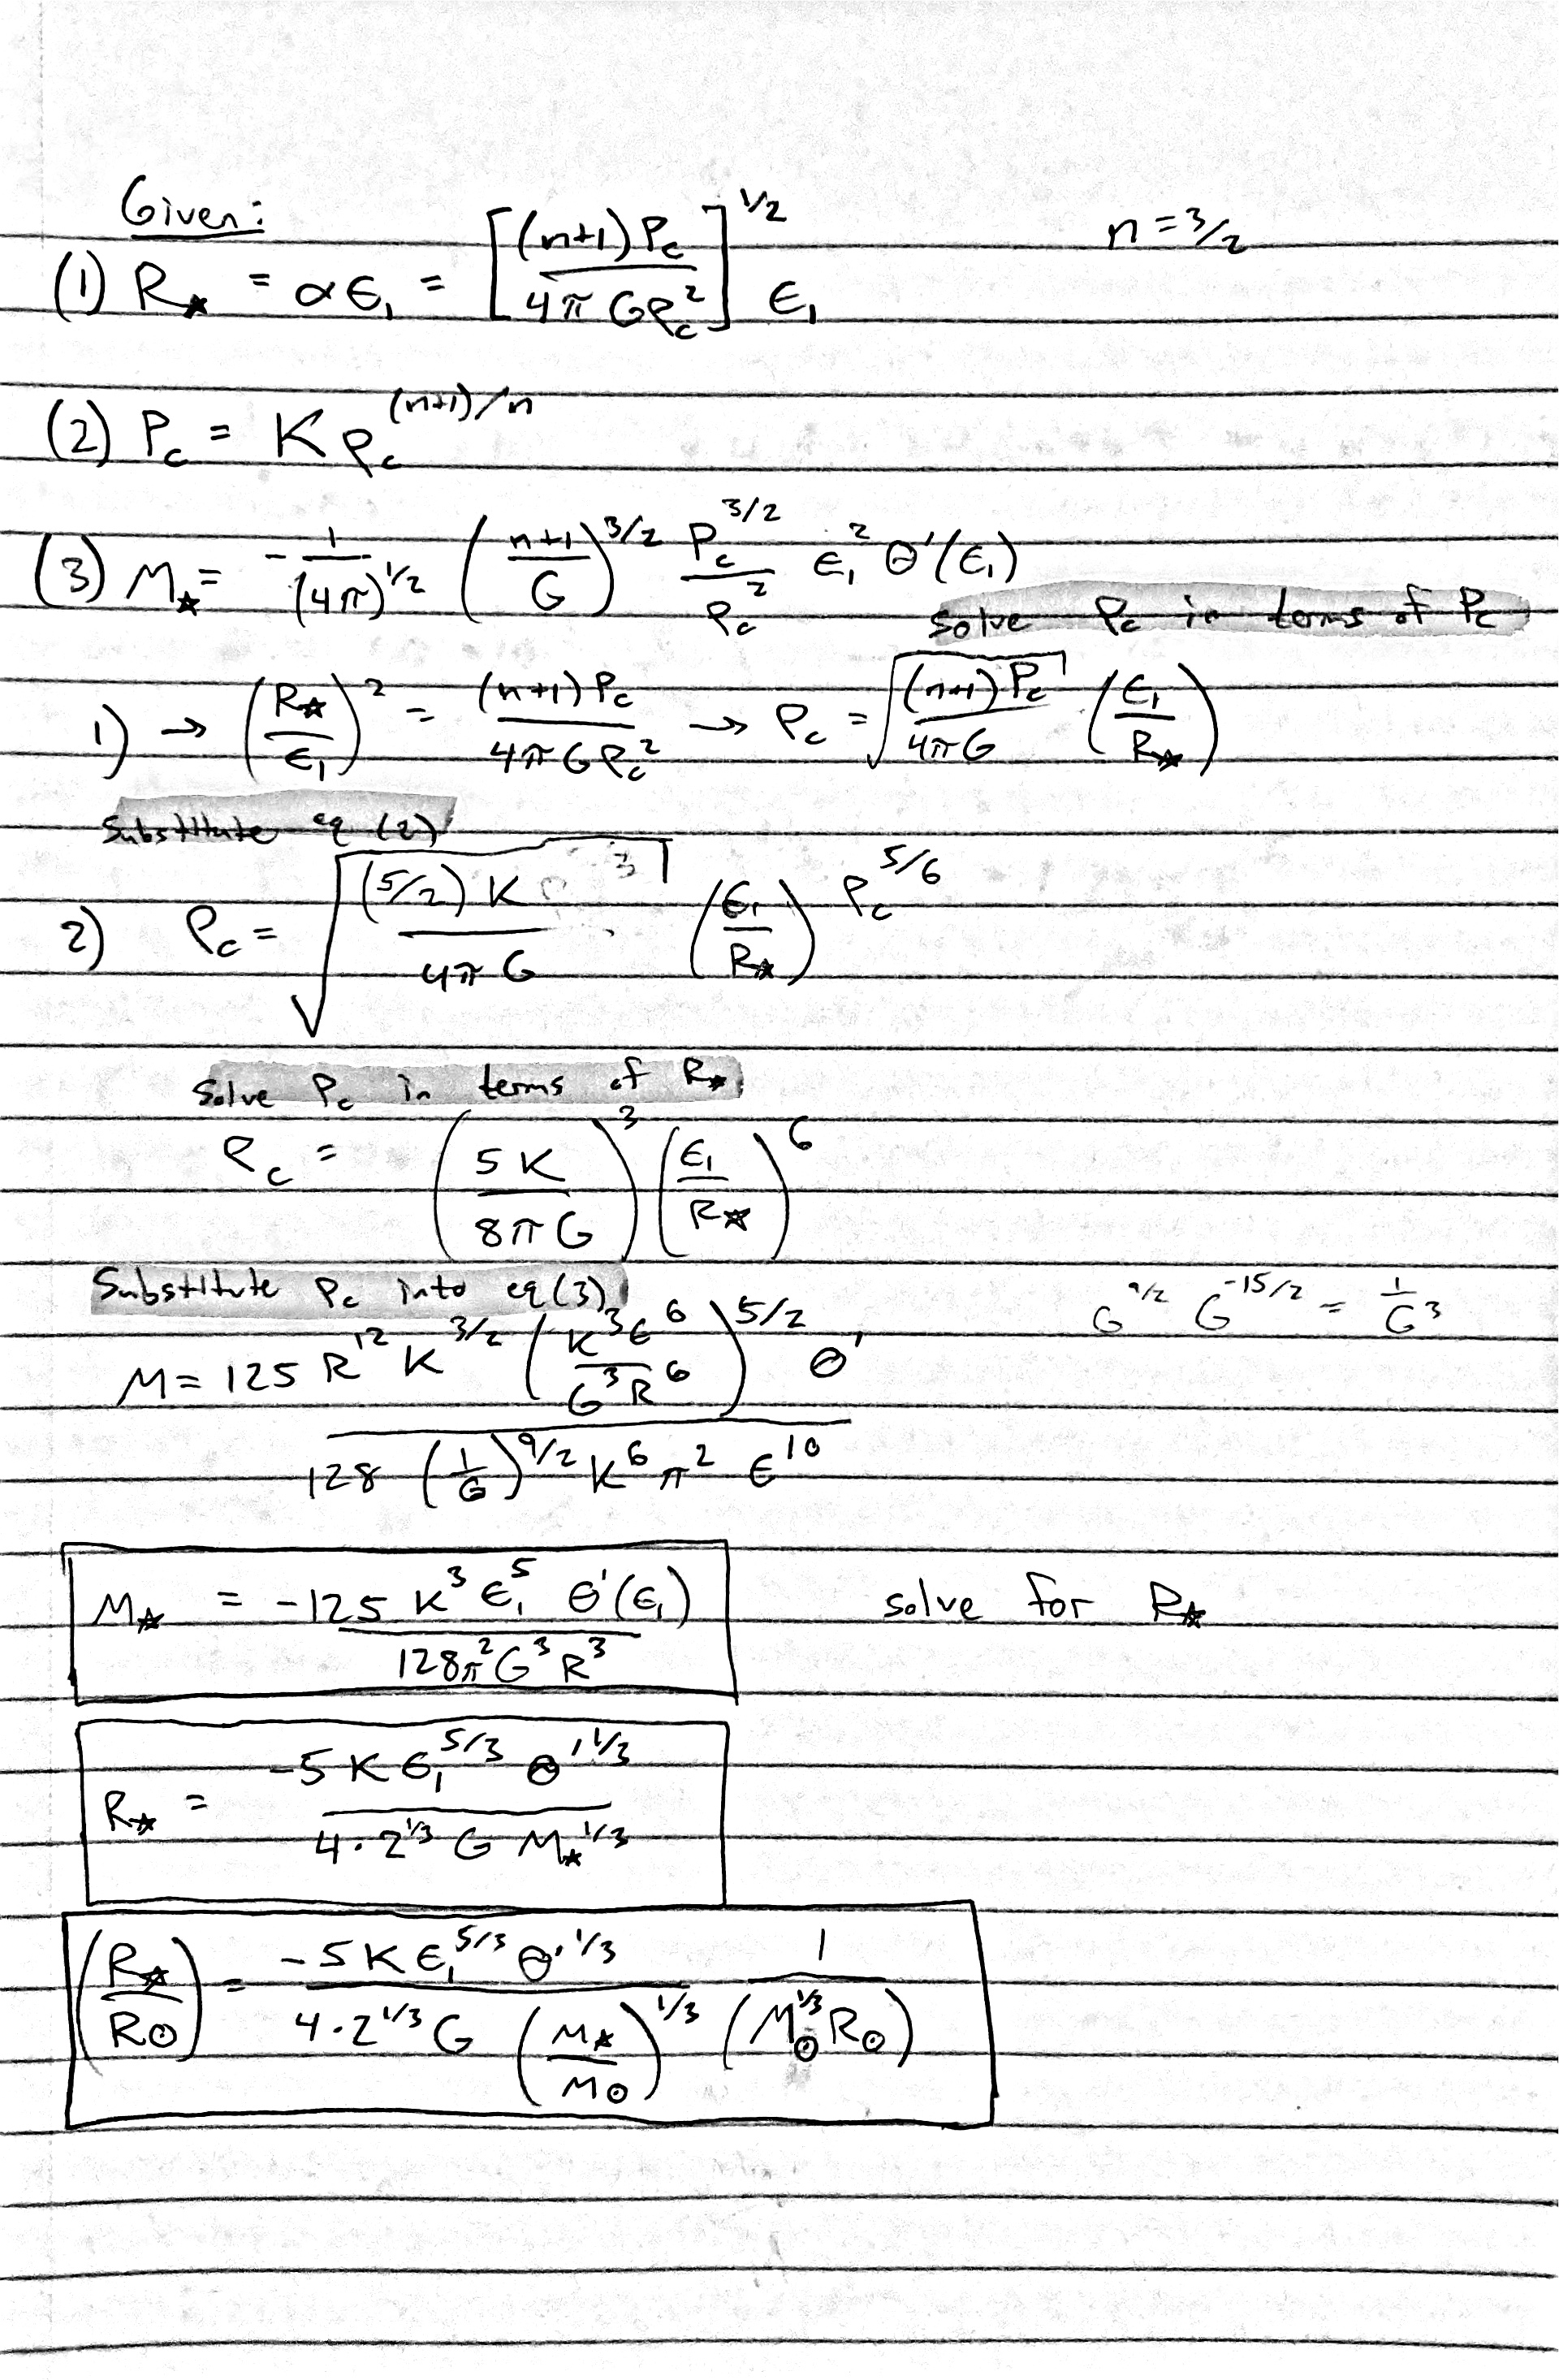 Given:
n = 3/2
(1) R★ = αϵ₁ = [(n+1) P_c / 4π G ρ_c²]^(1/2) ϵ₁
(2) P_c = K ρ_c^((n+1)/n)
(3) M★ = -1/(4π)^(1/2) ((n+1)/G)^(3/2) P_c^(3/2)/ρ_c² ϵ₁² Θ'(ϵ₁)
Solve ρ_c in terms of P_c
1) → (R★/ϵ₁)² = (n+1) P_c / 4π G ρ_c² → ρ_c = √((n+1) P_c / 4π G) (ϵ₁/R★)
Substitute eq (2)
2) ρ_c = √((5/2) K / 4π G) (ϵ₁/R★) ρ_c^(5/6)
Solve ρ_c in terms of R★
ρ_c = (5K / 8π G)³ (ϵ₁/R★)⁶
Substitute ρ_c into eq (3)
G^(9/2) G^(-15/2) = 1/G³
M = 125 R¹² K^(3/2) (K³ϵ⁶ / G³R⁶)^(5/2) Θ' / 128 (1/G)^(9/2) K⁶ π² ϵ¹⁰
M★ = -125 K³ ϵ₁⁵ Θ'(ϵ₁) / 128π² G³ R³
solve for R★
R★ = -5 K ϵ₁^(5/3) Θ'^(1/3) / 4·2^(1/3) G M★^(1/3)
(R★/R⊙) = -5 K ϵ₁^(5/3) Θ'^(1/3) / 4·2^(1/3) G (M★/M⊙)^(1/3) 1/(M⊙^(1/3) R⊙)